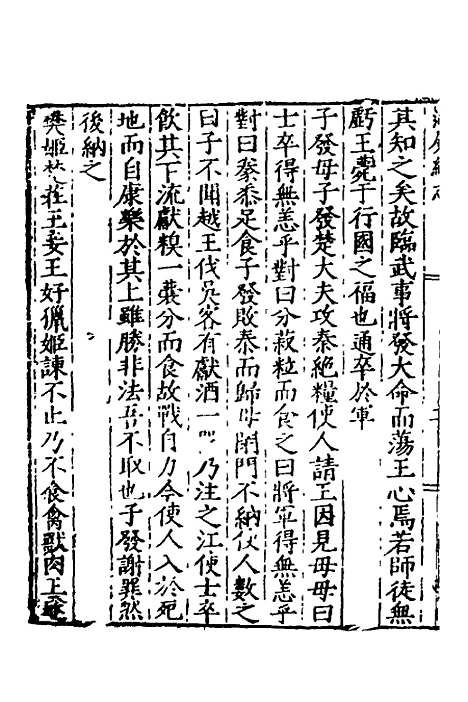 其知之矣故臨武事將發大命而蕩王心焉若師徒無
虧王薨于行國之福也遂卒於軍
子發母子發楚大夫攻秦絶糧使人請王因見母母曰
士卒得無恙乎對曰分菽粒而食之曰將軍得無恙乎
對曰豢黍足食子發敗秦而歸母閉門不納伙人數之
曰子不聞越王伐吳客有獻酒一 乃注之江使士卒
飲其下流獻糗一囊分而食故戰自力今使人入於死
地而自康樂於其上雖勝非法吾不取也子發謝罪然
後納之
樊姬 莊王妾王好獵姬諫不止乃不食禽獸肉王